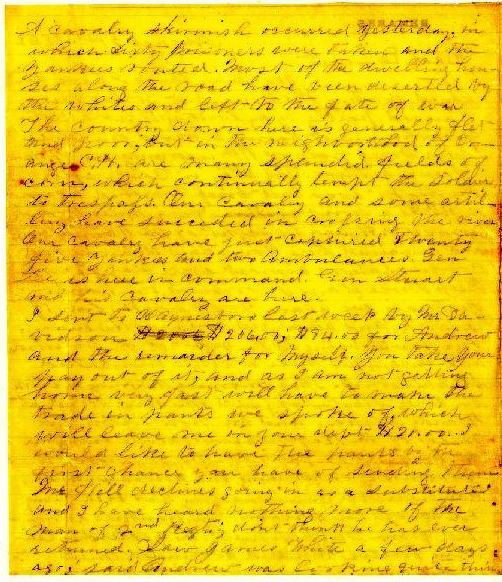 A cavalry skirmish occurred yesterday, in
which sixty prisoners were taken and the
Yankees routed. Most of the dwelling hou-
ses along the road have been deserted by
the whites and left to the fate of war
The country down here is generally flat
and poor, but in the neighborhood of Or-
ange C.H. are many splendid fields of
corn, which continually tempt the soldier
to trespass. Our Cavalry and some artil-
lery have succeeded in crossing the river
Our cavalry have just captured Twenty
five Yankees and two Ambulances. Gen
Lee is here in command. Gen Stuart
and his Cavalry are here.
I sent to Waynesboro last week by Mr Da-
vidson $206.00; $94.00 for Andrew
and the remainder for myself. You take your
pay out of it, and as I am not getting
home very fast will have to make the
trade in pants we spoke of, which
will leave me in your dept $20.00. I
would like to have the pants by the
first chance you have of sending them
Mr declines going in as a substitute
and I have heard nothing more of the
man of 2nd Regt; dont think he has ever
returned. Saw James White a few days
ago; said Andrew was looking quite thin